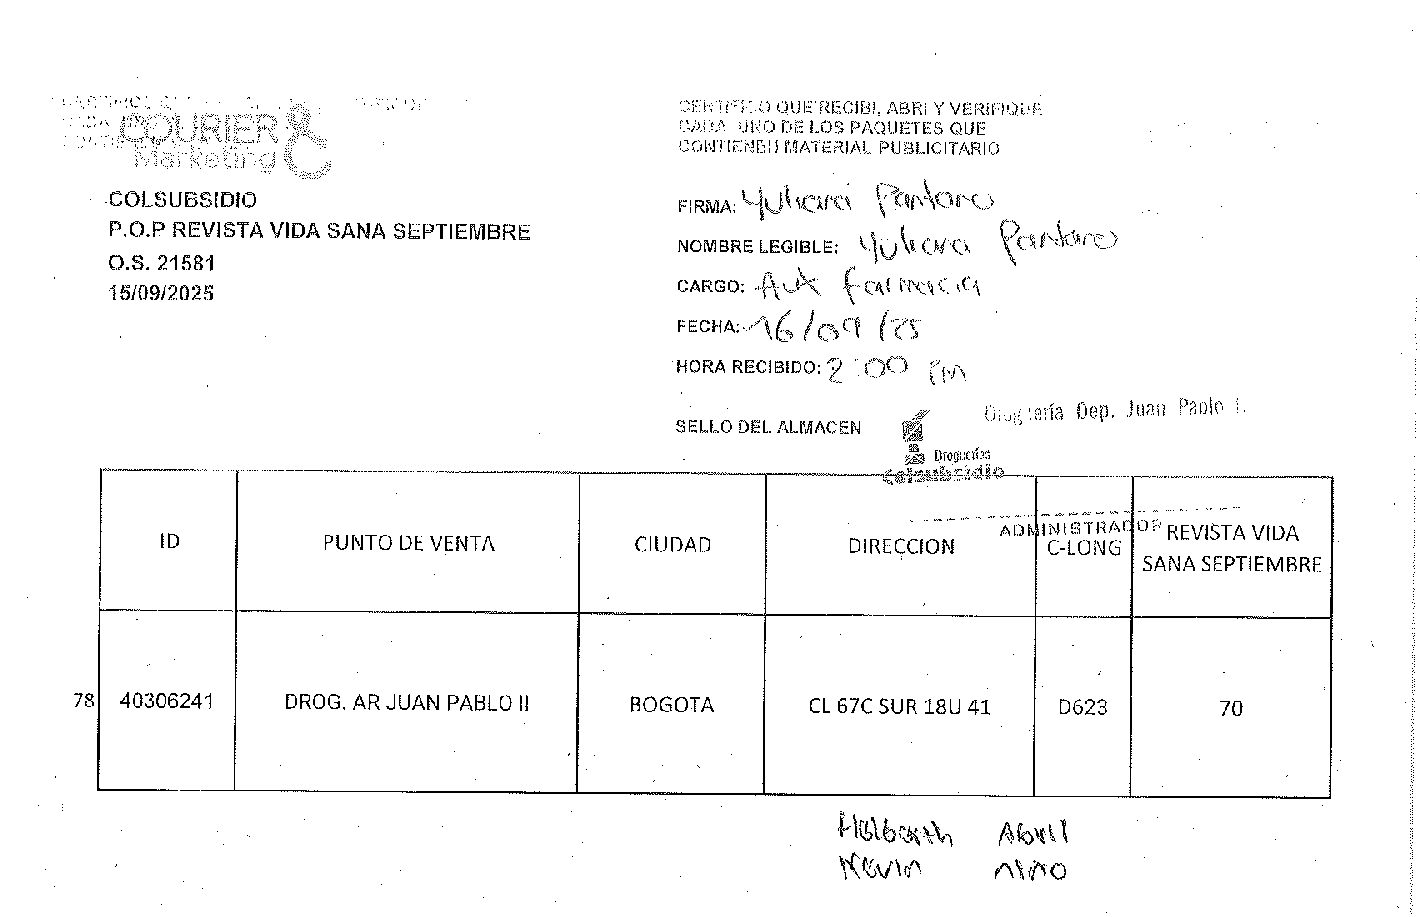 COURIER
Marketing
COLSUBSIDIO
P.O.P REVISTA VIDA SANA SEPTIEMBRE
O.S. 21581
15/09/2025
CERTIFICO QUE RECIBI, ABRI Y VERIFIQUE
CADA UNO DE LOS PAQUETES QUE
CONTIENEN MATERIAL PUBLICITARIO
FIRMA: Yuliara Pantoro
NOMBRE LEGIBLE: Yuliara Pantoro
CARGO: Aux farmacia
FECHA: 16/09/25
HORA RECIBIDO: 2:00 Pm
SELLO DEL ALMACEN
Droguería Dep. Juan Pablo I.
Droguerías
colsubsidio
ADMINISTRADOR
ID PUNTO DE VENTA CIUDAD DIRECCION C-LONG REVISTA VIDA
SANA SEPTIEMBRE
78 40306241 DROG. AR JUAN PABLO II BOGOTA CL 67C SUR 18U 41 D623 70
Abril
Kevin nino